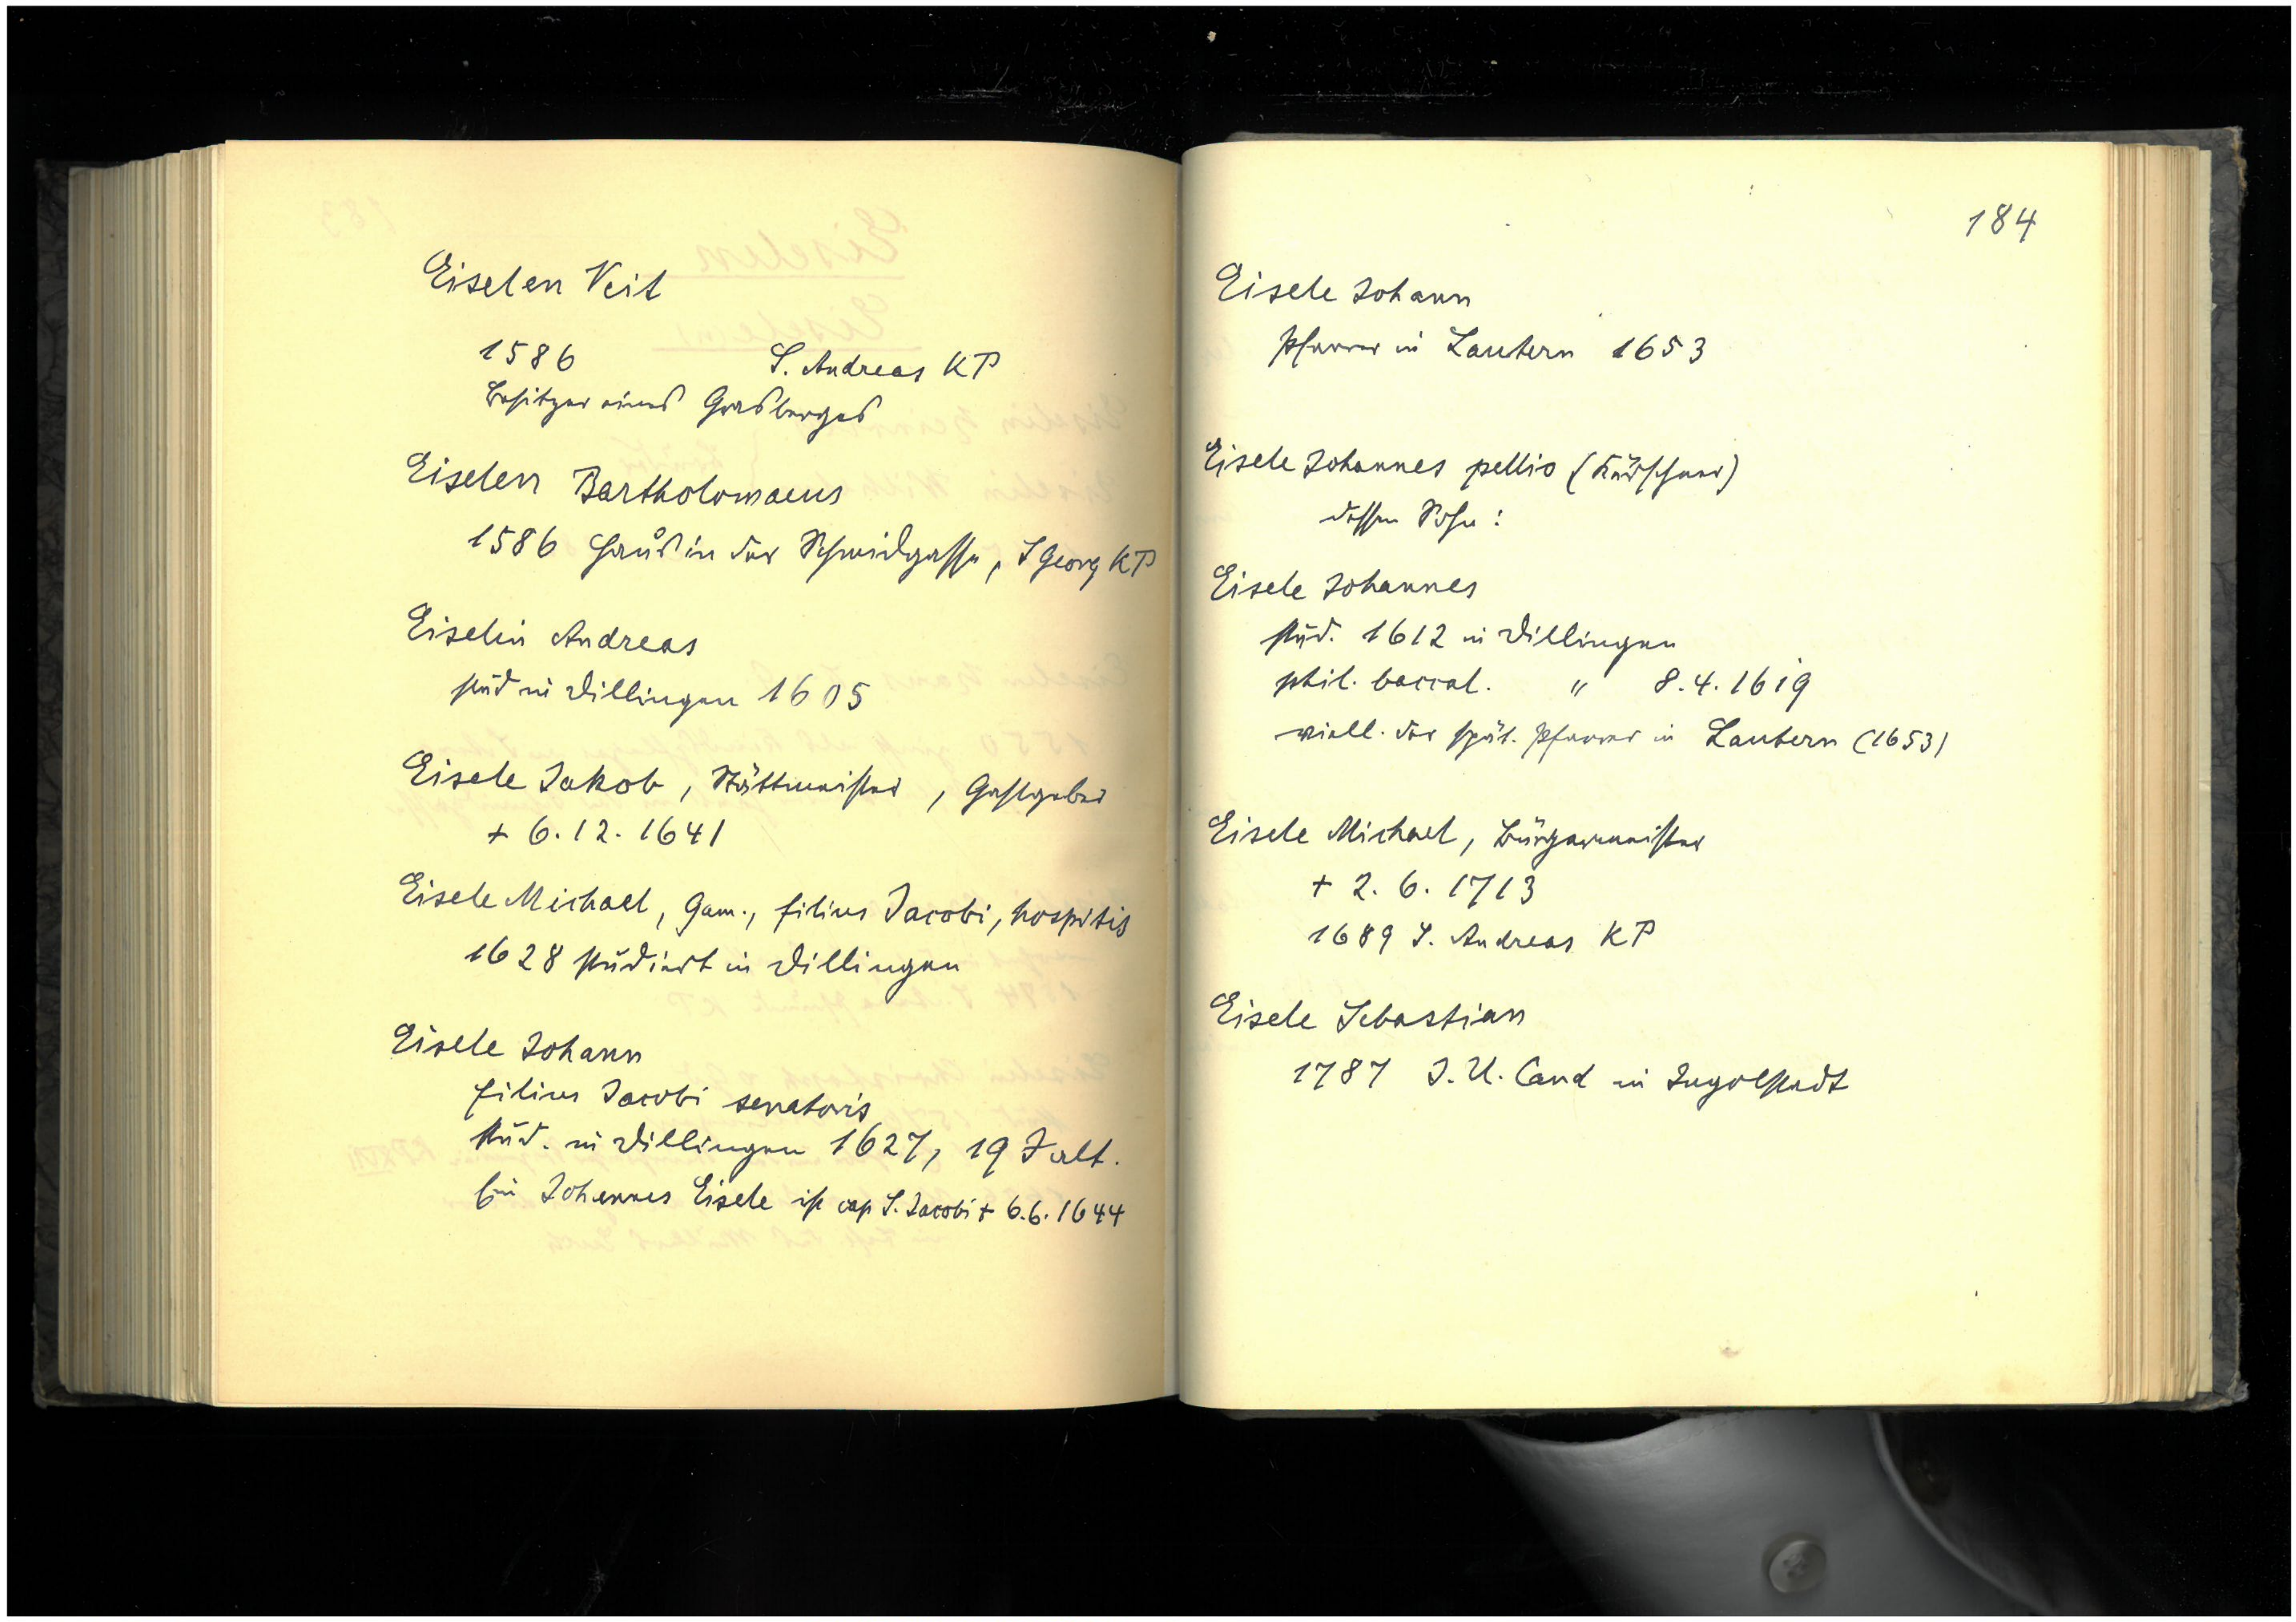 Eiselen Veit
1586 S. Andreas KP
Besitzer eines Grasberges
Eiselen Bartholomaeus
1586 Haus in der Schmidgasse, S Georg KP
Eiselin Andreas
stud in Dillingen 1605
Eisele Jakob, Stättmeister, Gastgeber
+ 6.12.1641
Eisele Michael, Gam., filius Jacobi, hospitis
1628 studiert in Dillingen
Eisele Johann
filius Jacobi senatoris
stud. in Dillingen 1627, 19 J alt.
Ein Johannes Eisele ist cap S. Jacobi + 6.6.1644
184
Eisele Johann
Pfarrer in Lautern 1653
Eisele Johannes pellio (Kürschner)
dessen Sohn:
Eisele Johannes
stud. 1612 in Dillingen
phil. baccal. " 8.4.1619
viell. der spät. Pfarrer in Lautern (1653)
Eisele Michael, Bürgermeister
+ 2.6.1713
1689 S. Andreas KP
Eisele Sebastian
1787 J.U. Cand in Ingolstadt